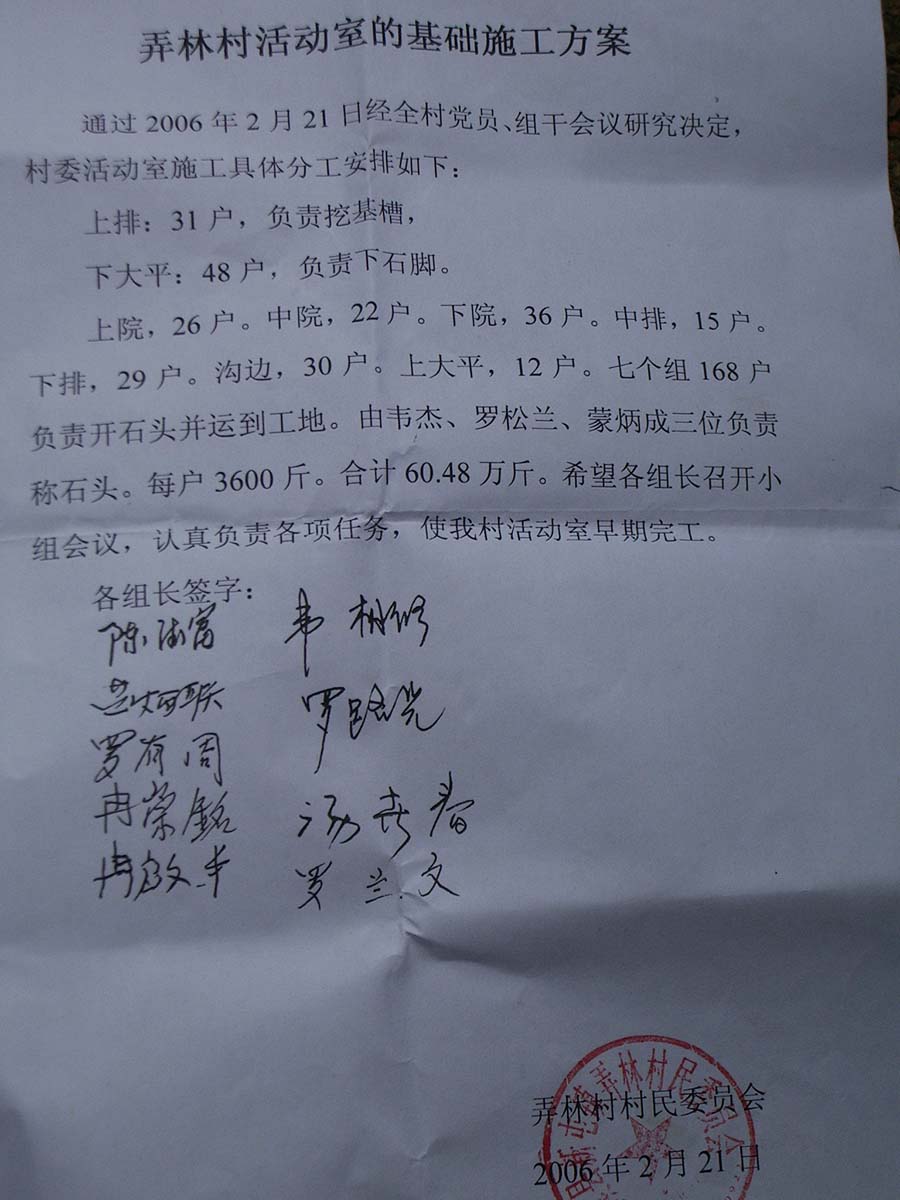 弄林村活动室的基础施工方案
通过 2006 年 2 月 21 日经全村党员、组干会议研究决定，
村委活动室施工具体分工安排如下：
上排：31 户，负责挖基槽，
下大平：48 户，负责下石脚。
上院，26 户。中院，22 户。下院，36 户。中排，15 户。
下排，29 户。沟边，30 户。上大平，12 户。七个组 168 户
负责开石头并运到工地。由韦杰、罗松兰、蒙炳成三位负责
称石头。每户 3600 斤。合计 60.48 万斤。希望各组长召开小
组会议，认真负责各项任务，使我村活动室早期完工。
各组长签字：
陈 富 韦
罗
罗有周
冉荣銘 汤 春
冉啟 罗兰文
弄林村民委员会
弄林村村民委员会
2006 年 2 月 21 日